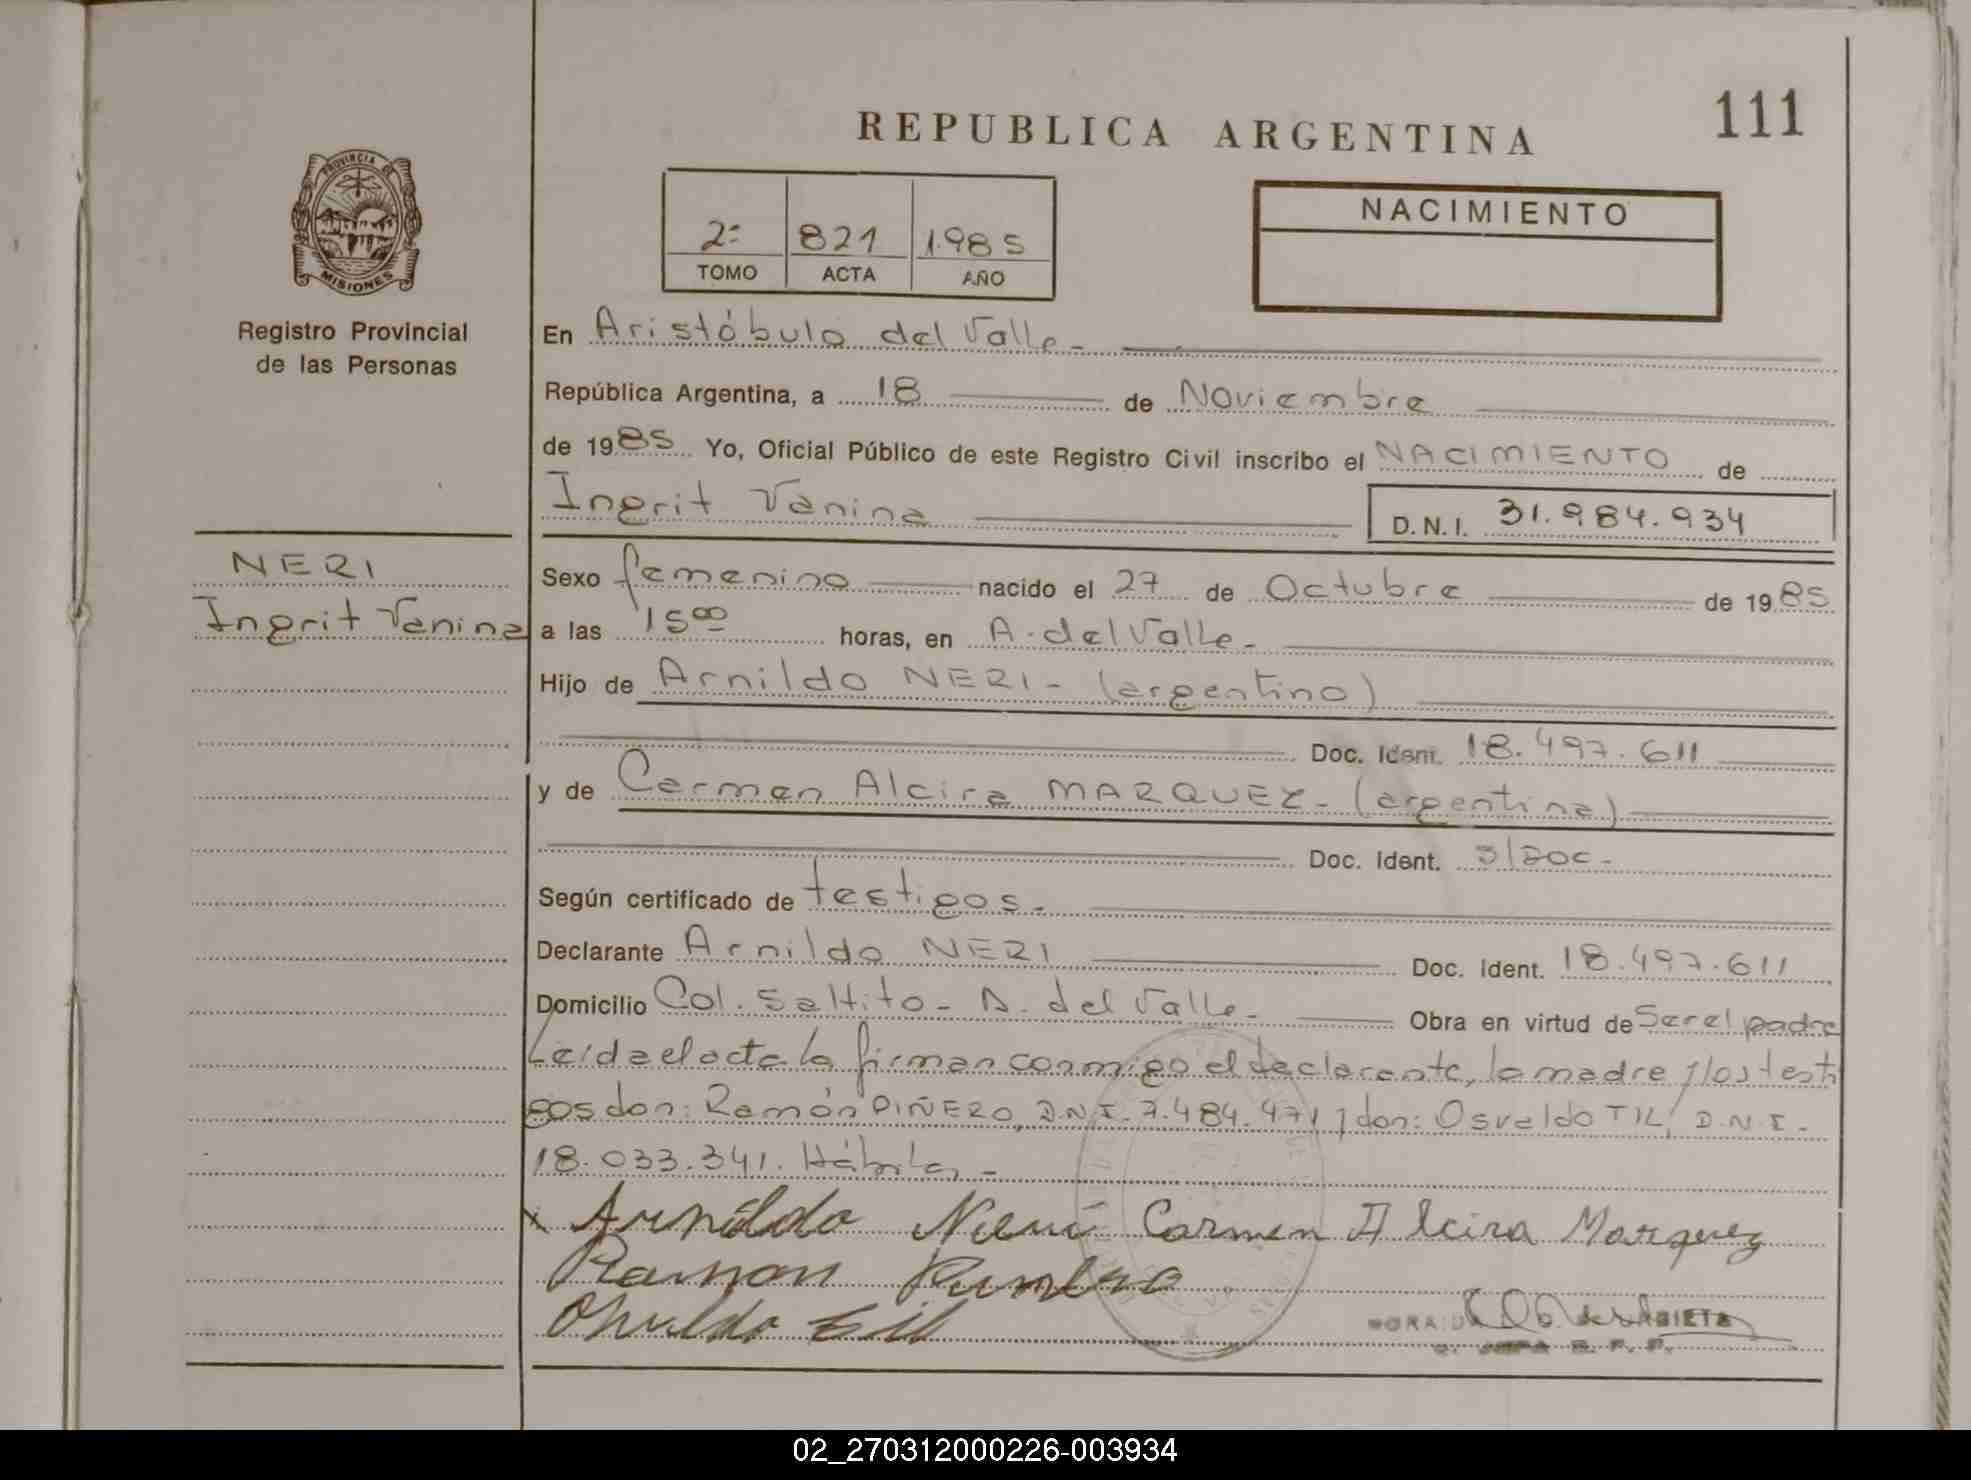 111
REPUBLICA ARGENTINA
PROVINCIA DE
MISIONES
Registro Provincial
de las Personas
2º 821 1.985
TOMO ACTA AÑO
NACIMIENTO
En Aristóbulo del Valle.-
República Argentina, a 18 de Noviembre
de 1985 Yo, Oficial Público de este Registro Civil inscribo el NACIMIENTO de
Ingrit Vanina D.N.I. 31.984.934
NERI
Ingrit Vanina
Sexo femenino nacido el 27 de Octubre de 1985
a las 1500 horas, en A. del Valle.-
Hijo de Arnildo NERI - (argentino)
Doc. Ident. 18.497.611
y de Carmen Alcira MARQUEZ - (argentina)
Doc. Ident. s/doc.-
Según certificado de testigos.-
Declarante Arnildo NERI Doc. Ident. 18.497.611
Domicilio Col. Saltito - A. del Valle.- Obra en virtud de Ser el padre
Leída el acta la firman conmigo el declarante, la madre y los testi
gos don: Ramón PIÑERO, D.N.I. 7.484.471 y don: Osvaldo TIL, D.N.I.-
18.033.341. Hábiles.-
x Arnildo Neri Carmen Alcira Marquez
Ramon
02_270312000226-003934